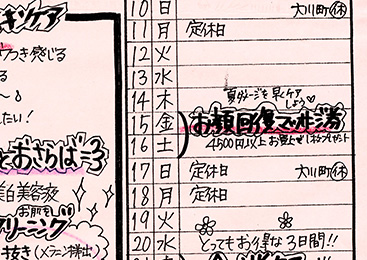 キンケア
つき感じる
る
〜8
たい!
とおさらば
美白美容液
お肌をし
クリーニング
抜き(メラニン排出)
10 日 大川町(休)
11 月 定休日
12 火
13 水
14 木 夏ダメージを早くケアしよう♡
15 金
16 土 4500円以上お買上げで1コプレゼント
17 日 定休日 大川町(休)
18 月 定休日
19 火
20 水 とってもお得な3日間!!